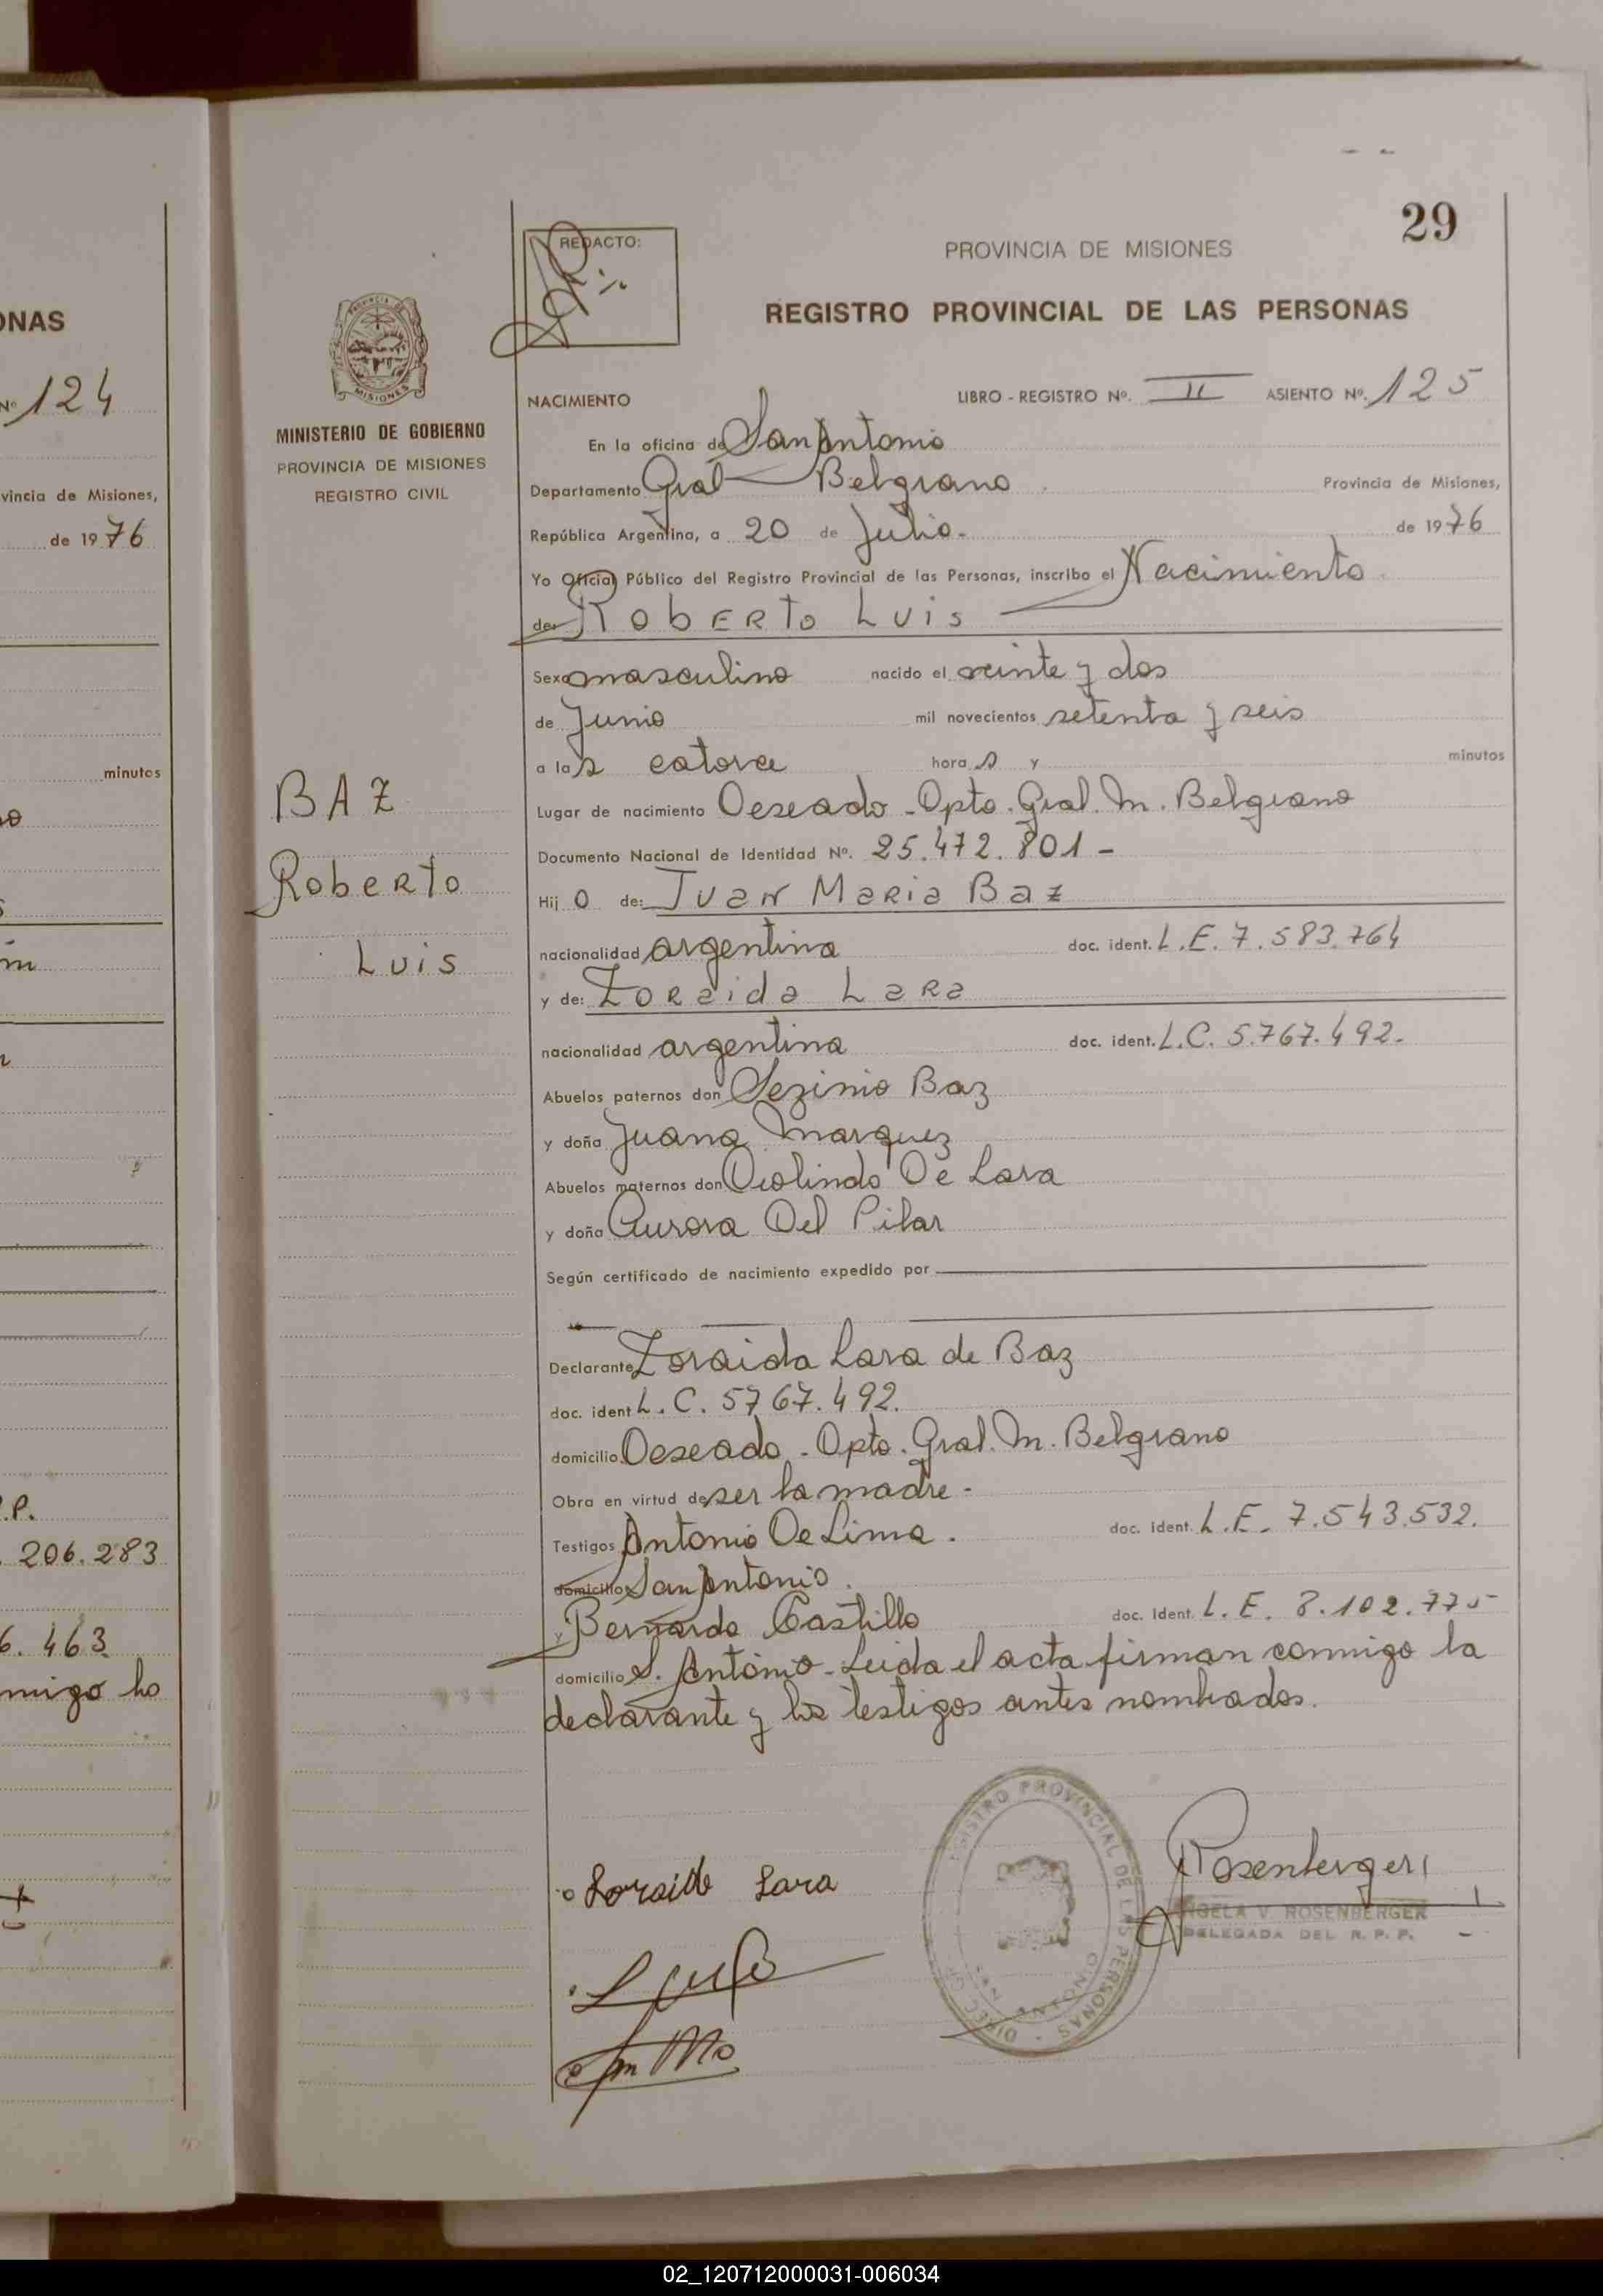 29
PROVINCIA DE MISIONES
REGISTRO PROVINCIAL DE LAS PERSONAS
REDACTO:
NACIMIENTO
LIBRO - REGISTRO Nº. II ASIENTO Nº. 125
En la oficina de San Antonio
Departamento Gral Belgrano Provincia de Misiones,
República Argentina, a 20 de Julio - de 1976
Yo Oficial Público del Registro Provincial de las Personas, inscribo el Nacimiento
de: Roberto Luis
Sexo masculino nacido el veinte y dos
de Junio mil novecientos setenta y seis
a las catorce horas y minutos
Lugar de nacimiento Deseado - Dpto. Gral. M. Belgrano
Documento Nacional de Identidad Nº. 25.472.801 -
Hijo de: Juan Maria Baz
nacionalidad argentina doc. ident. L.E. 7.583.764
y de: Zoraida Lara
nacionalidad argentina doc. ident. L.C. 5.767.492.
Abuelos paternos don Sezinio Baz
y doña Juana Marquez
Abuelos maternos don De Lara
y doña Aurora Del Pilar
Según certificado de nacimiento expedido por
Declarante Zoraida Lara de Baz
doc. ident L.C. 5767.492.
domicilio Deseado - Dpto. Gral. M. Belgrano
Obra en virtud de ser la madre -
Testigos Antonio De Lima. doc. ident. L.E. 7.543.532.
domicilio San Antonio.
y Bernardo Castillo doc. Ident. L.E. 8.102.775
domicilio S. Antonio - Leida el acta firman conmigo la
declarante y los testigos antes nombrados.
Zoraida Lara
Rosenberger
ANGELA V. ROSENBERGER
DELEGADA DEL R. P. P.
REGISTRO PROVINCIAL DE LAS PERSONAS
SAN ANTONIO
PROVINCIA DE
MISIONES
MINISTERIO DE GOBIERNO
PROVINCIA DE MISIONES
REGISTRO CIVIL
BAZ
Roberto
Luis
ONAS
Nº 124
vincia de Misiones,
de 1976
minutos
.P.
206.283
6.463
migo lo
02_120712000031-006034